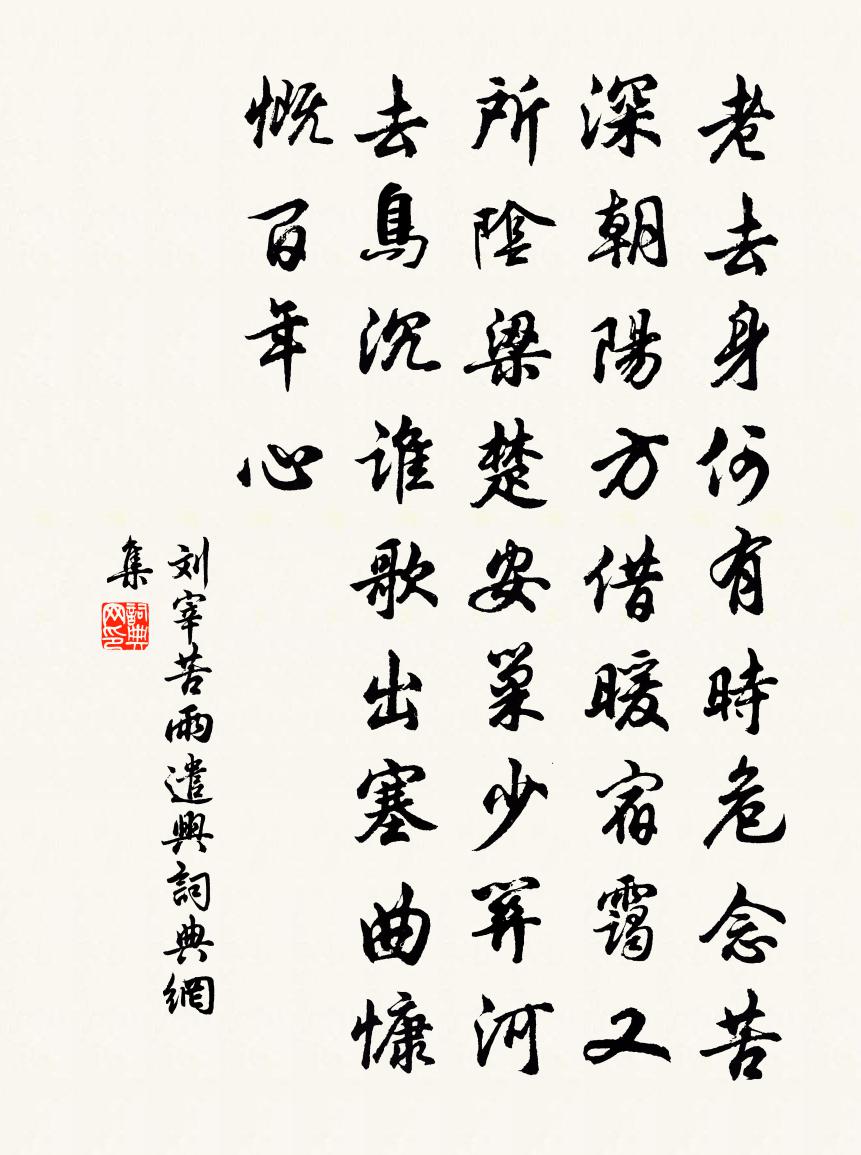 老去身何有時危念苦
深朝陽方借暖宿靄又
所陰梁楚安巢少關河
去鳥沉誰歌出塞曲慷
慨百年心
刘宰苦雨遣興詞典網
集
詞典
网印